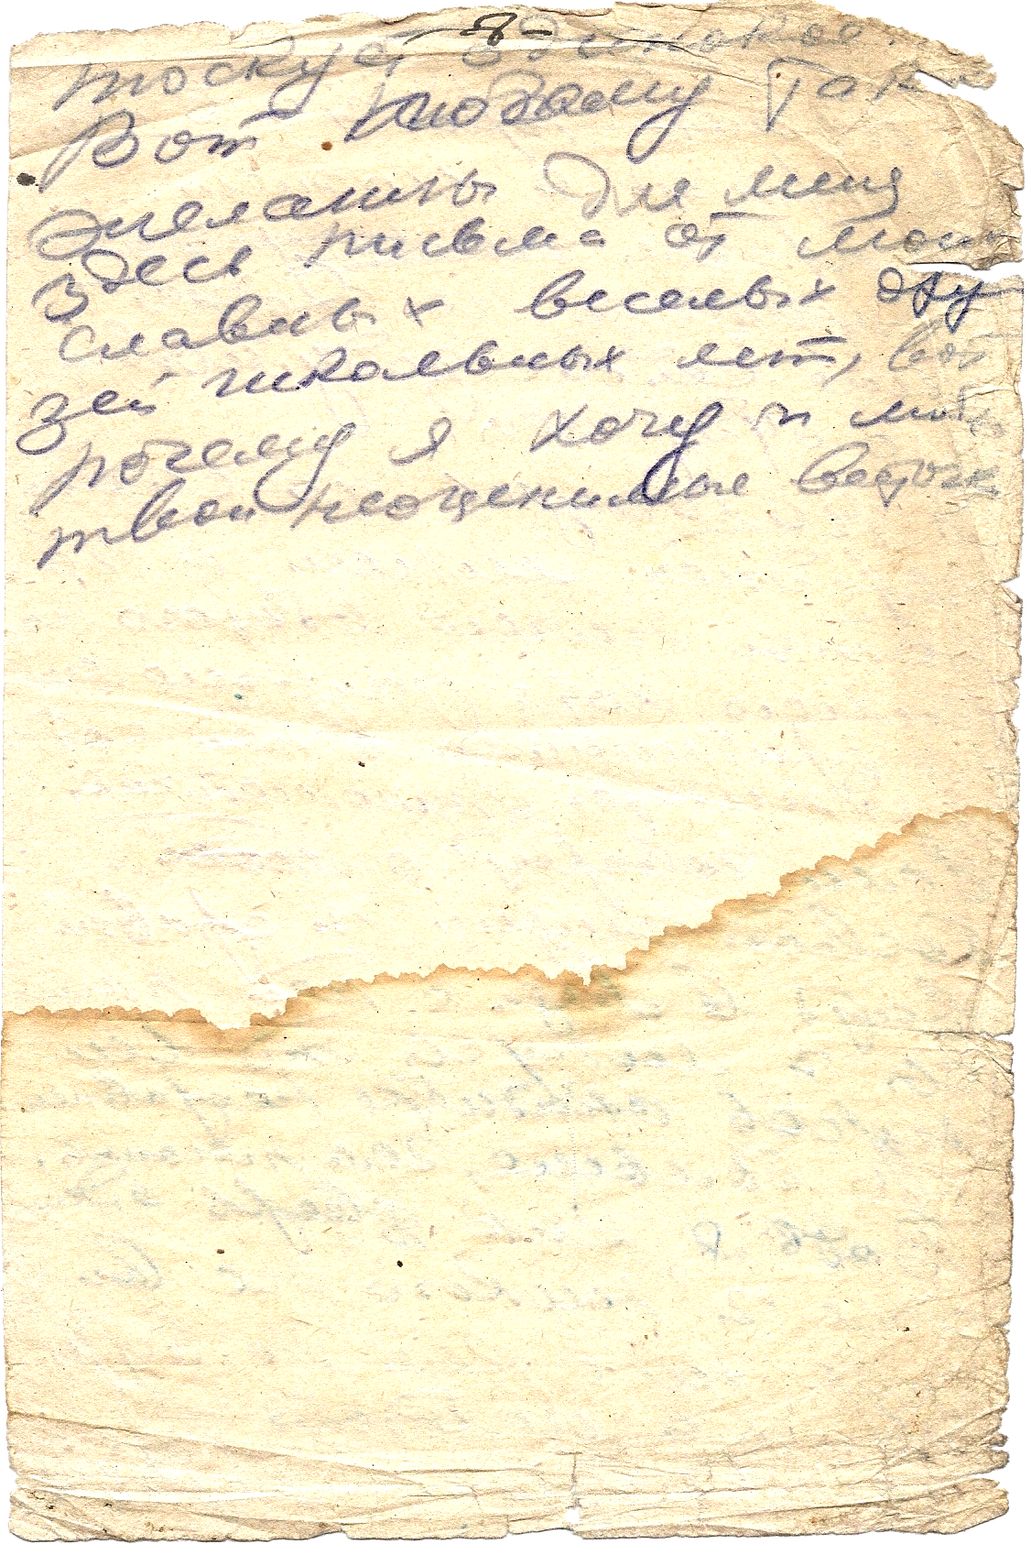 -8-
тоскует одиноко.
Вот потому так
желанны для меня
здесь письма от моих
славных веселых дру
зей школьных лет, вот
почему я хочу и люблю
твои неоценимые весточки